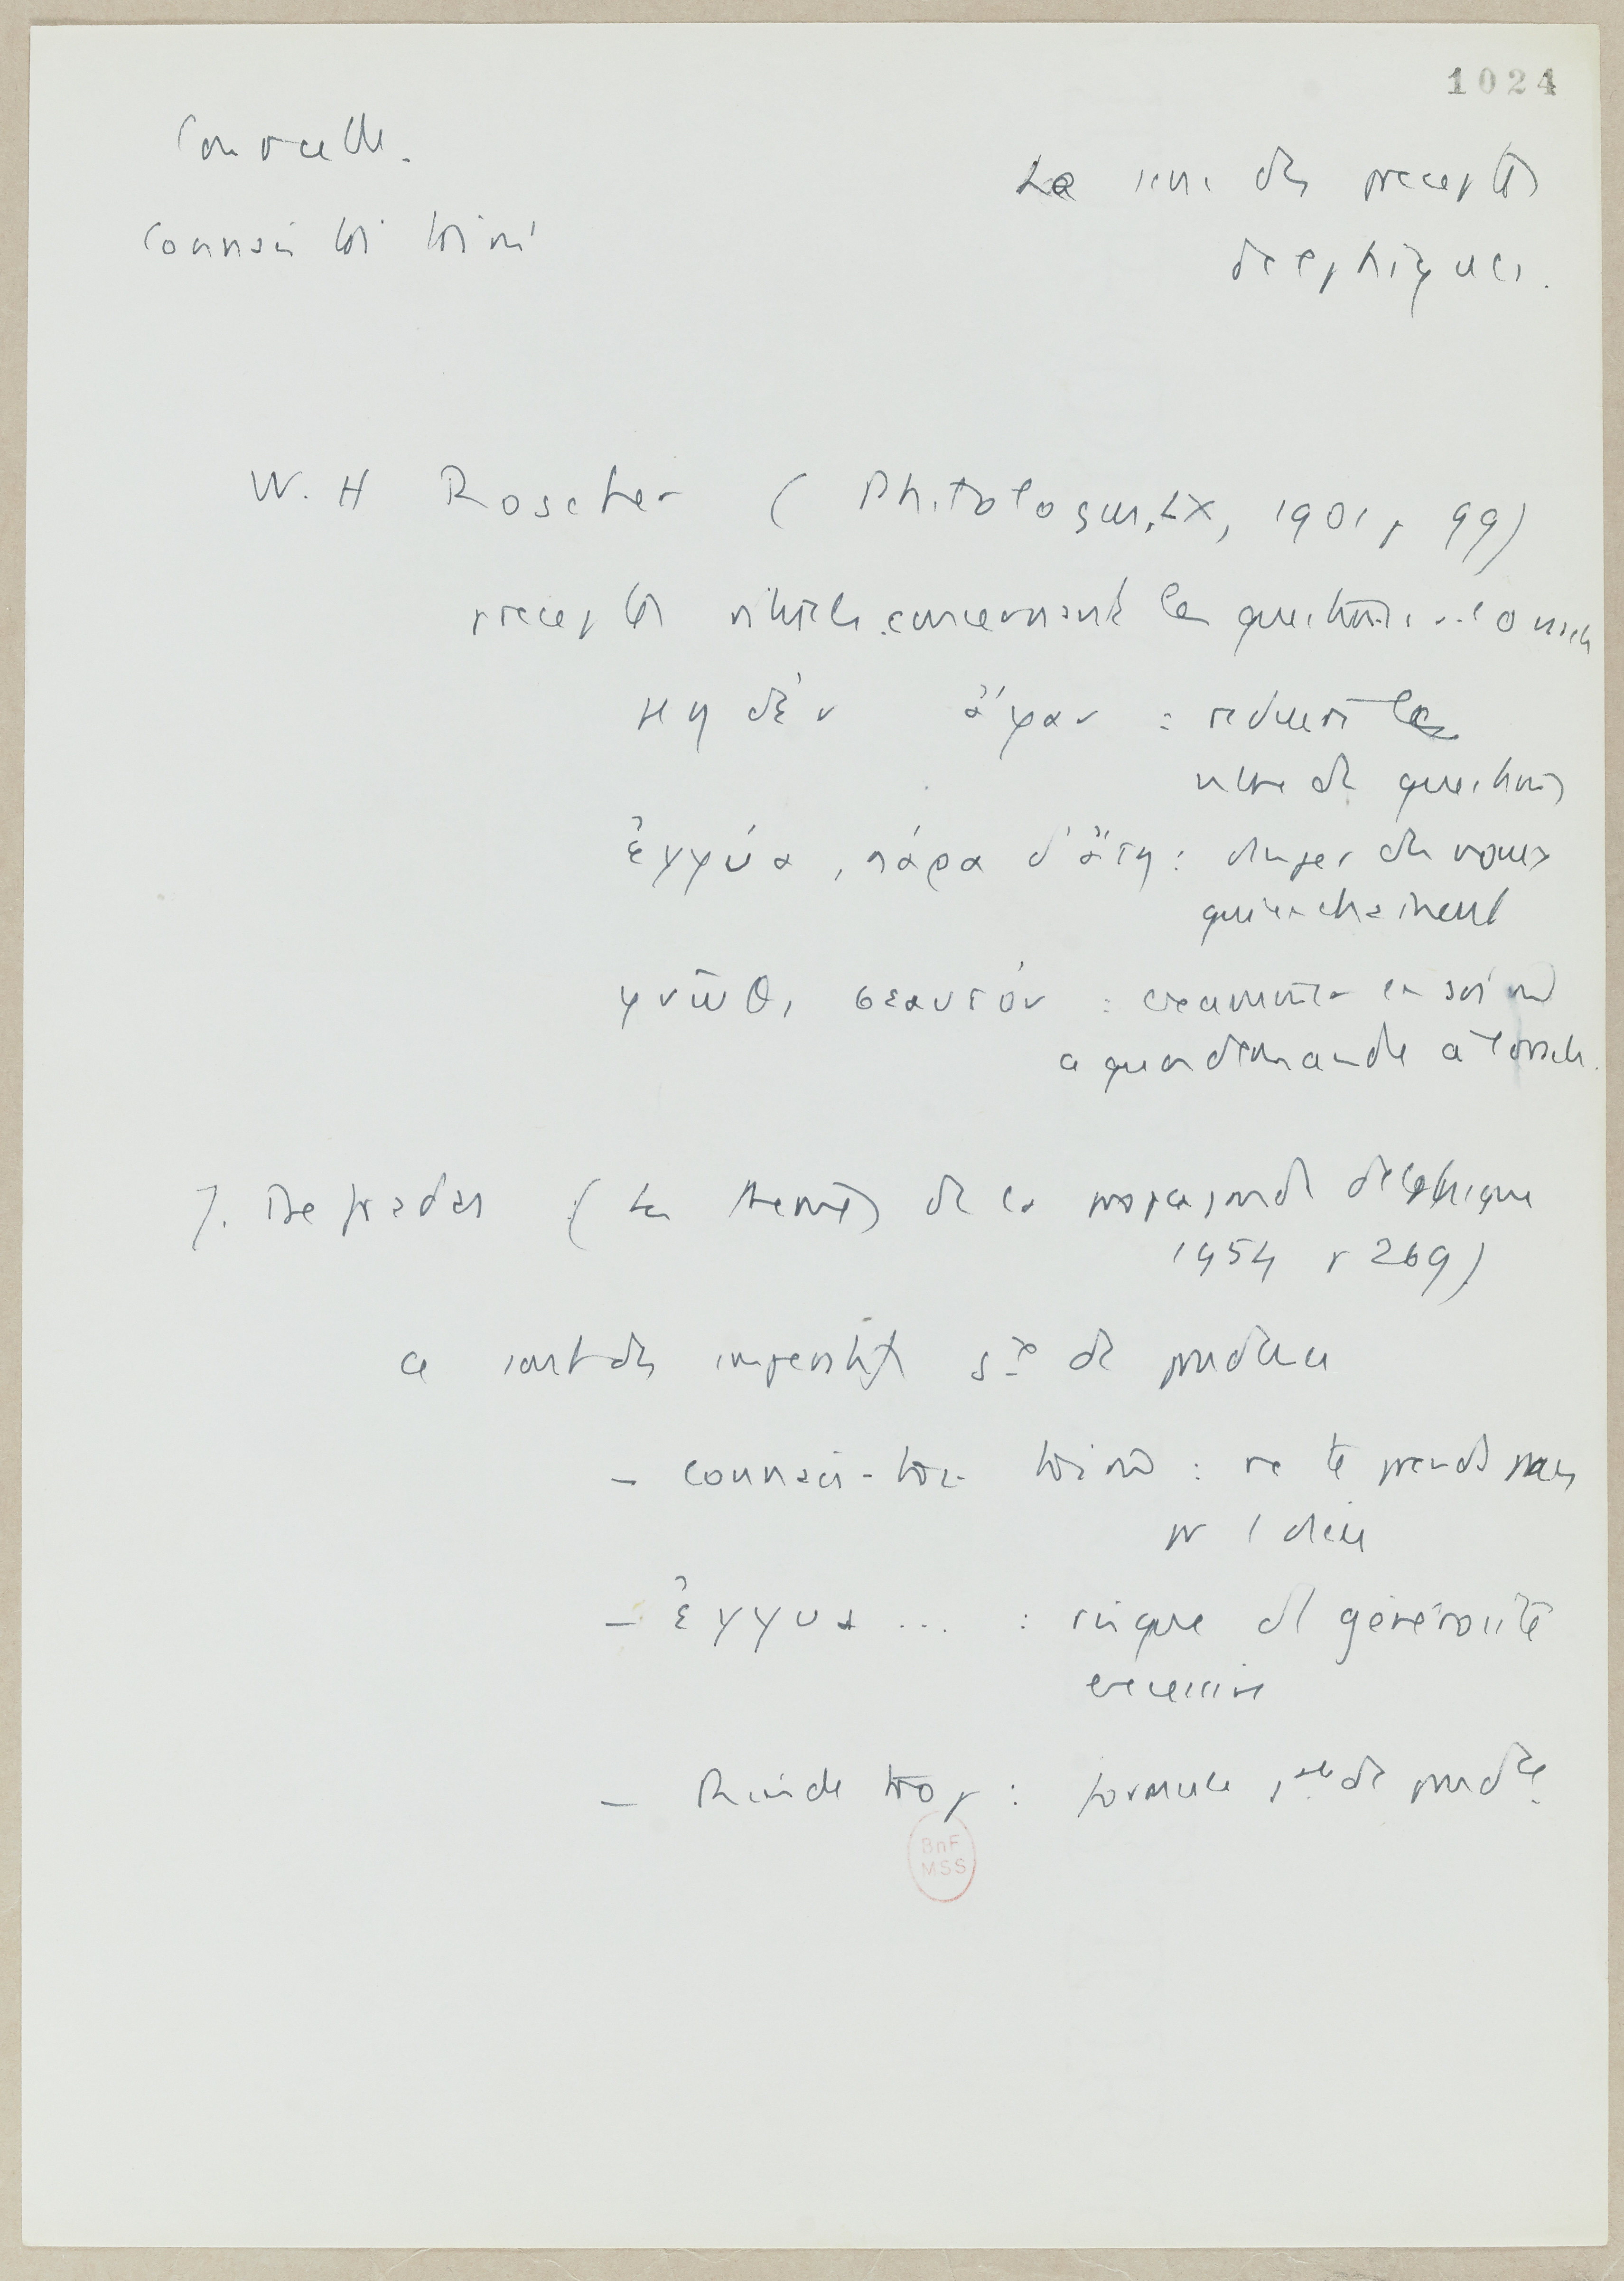 1024
Courcelle.
Connais toi toi m̂
Le sens des preceptes
delphiques.
W. H Roscher ( Philologus, LX, 1901, p 99)
preceptes rituels concernant les questions à l'oracle
μηδέν ἄγαν : réduire le
nbre de questions
ἐγγύα, πάρα δ'ἄτη : danger des voeux
qui enchainent
γνῶθι σεαυτόν : examiner en soi m̂
ce qu'on demande a l'oracle.
J. Defradas (Les themes de la propagande delphique
1954 p 269)
ce sont des imperatifs gx de prudence
- connais-toi toi m̂ : ne te prends pas
pr 1 dieu
- ἐγγυα ... : risque de générosité
excessive
- Rien de trop : formule gale de prudce.
BnF
MSS